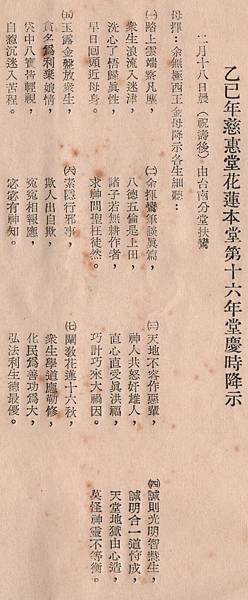 乙巳年慈惠堂花蓮本堂第十六年堂慶時降示
二月十八日晨（祝壽後）由台南分堂扶鸞
母揮：余無極西王金母降示各生細聽：
㈠踏上雲端察凡塵，
衆生浪流入迷津，
洗心了悟歸眞性，
早日回頭近母身。
㈡余揮鸞筆談眞篇，
八德五倫是上田，
諸子若無耕作者，
求神問聖枉徒然。
㈢天地不容作惡輩，
神人共怒奸雄人，
直心直受眞洪福，
巧計巧來大禍因。
㈣誠則光明智慧生，
誠明合一道將成，
天堂地獄由心造，
莫怪神靈不等衡。
㈤玉露金盤放衆生，
貪名爲利棄娘情，
袋中八寶皆輕視，
自惹沉迷入苦程。
㈥素隱行邪事，
欺人出自欺，
寃寃相報應，
密密有神知。
㈦開敎花蓮十六秋，
衆生學道應勤修，
化民爲善功爲大，
弘法利生德最優。